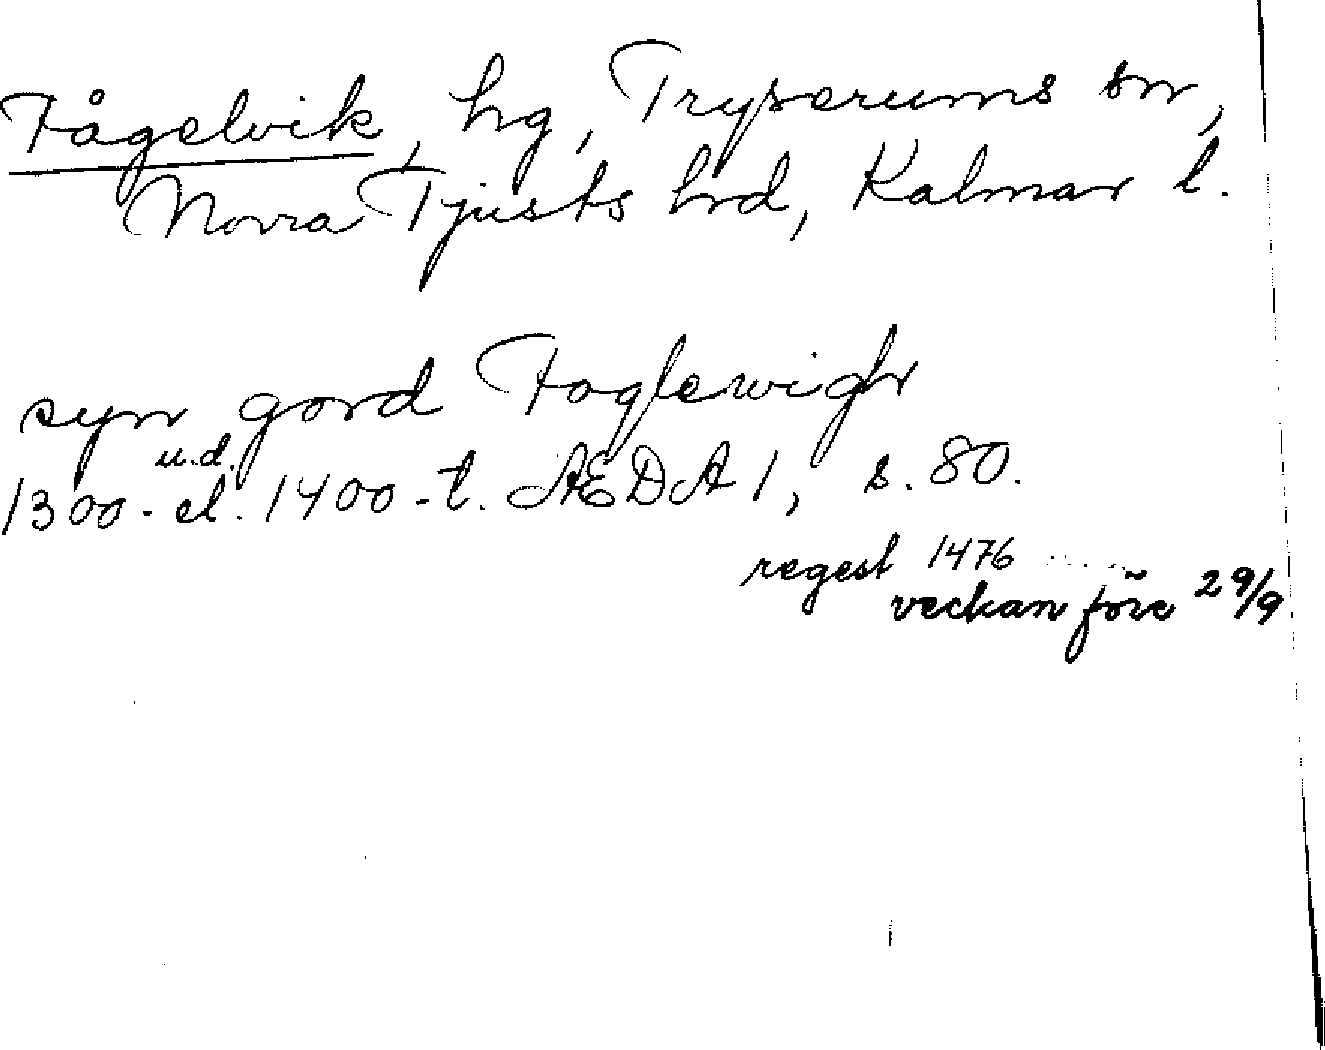 Fågelvik, hg, Tryserums sn,
Norra Tjusts hrd, Kalmar l.
syn gord Foglewigh
u.d.
1300- el. 1400-t. ÆDA 1, s. 80.
regest 1476
veckan före 29/9